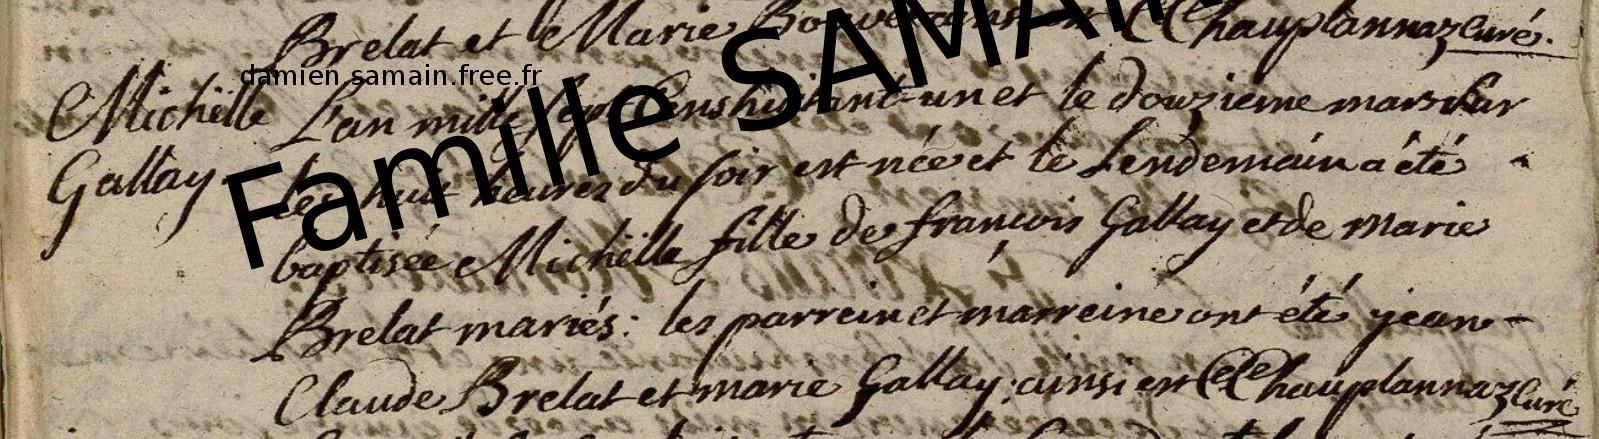 Brelat et Marie Bouverains est CChauplannaz Curé.
damien.samain.free.fr
Famille SAMAIN
Michëlle
Gallay.
L'an mille sept cens huitant-un et le douzieme mars sur
les huit heures du soir est née et le Lendemain a été
baptisée Michëlle fille de françois Gallay et de Marie
Brelat mariés: les parrein et marreine ont été jean-
Claude Brelat et marie Gallay; ainsi est CChauplannaz Curé